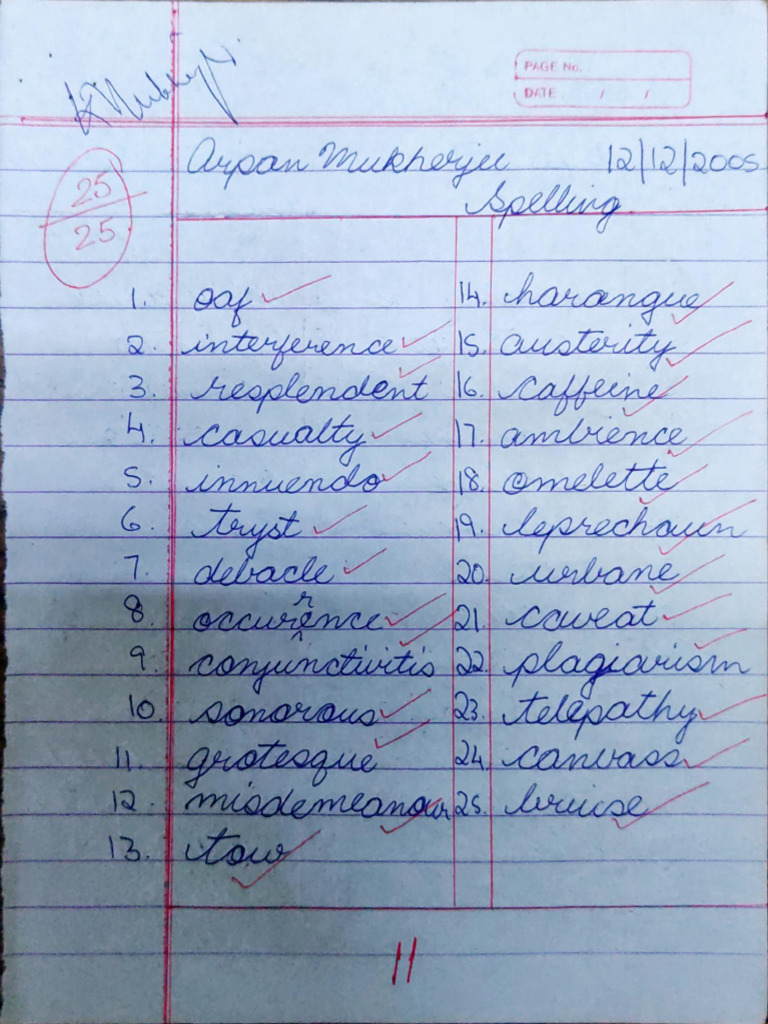 PAGE No.
DATE / /
Arpan Mukherjee 12/12/2005
Spelling
25
25
1. oaf
2. interference
3. resplendent
4. casualty
5. innuendo
6. tryst
7. debacle
8. occurrence
9. conjunctivitis
10. sonorous
11. grotesque
12. misdemeanour
13. tour
14. harangue
15. austerity
16. caffeine
17. ambience
18. omelette
19. leprechaun
20. urbane
21. caveat
22. plagiarism
23. telepathy
24. canvass
25. bruise
11